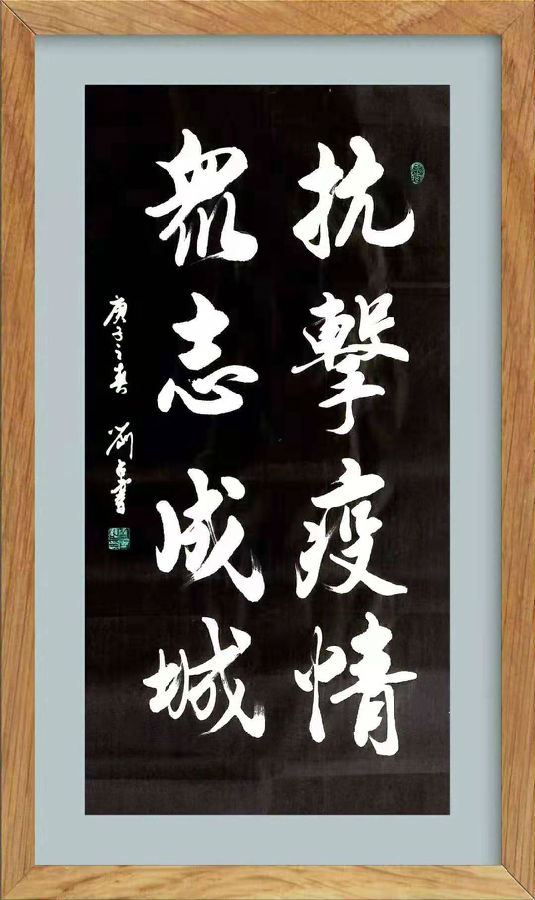 抗擊疫情
眾志成城
庚子之春 劉